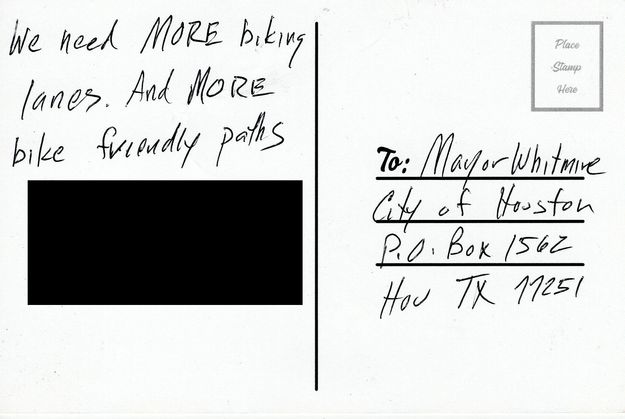 We need MORE biking
lanes. And MORE
bike friendly paths
Place
Stamp
Here
To: Mayor Whitmire
City of Houston
P.O. Box 1562
Hou TX 77251